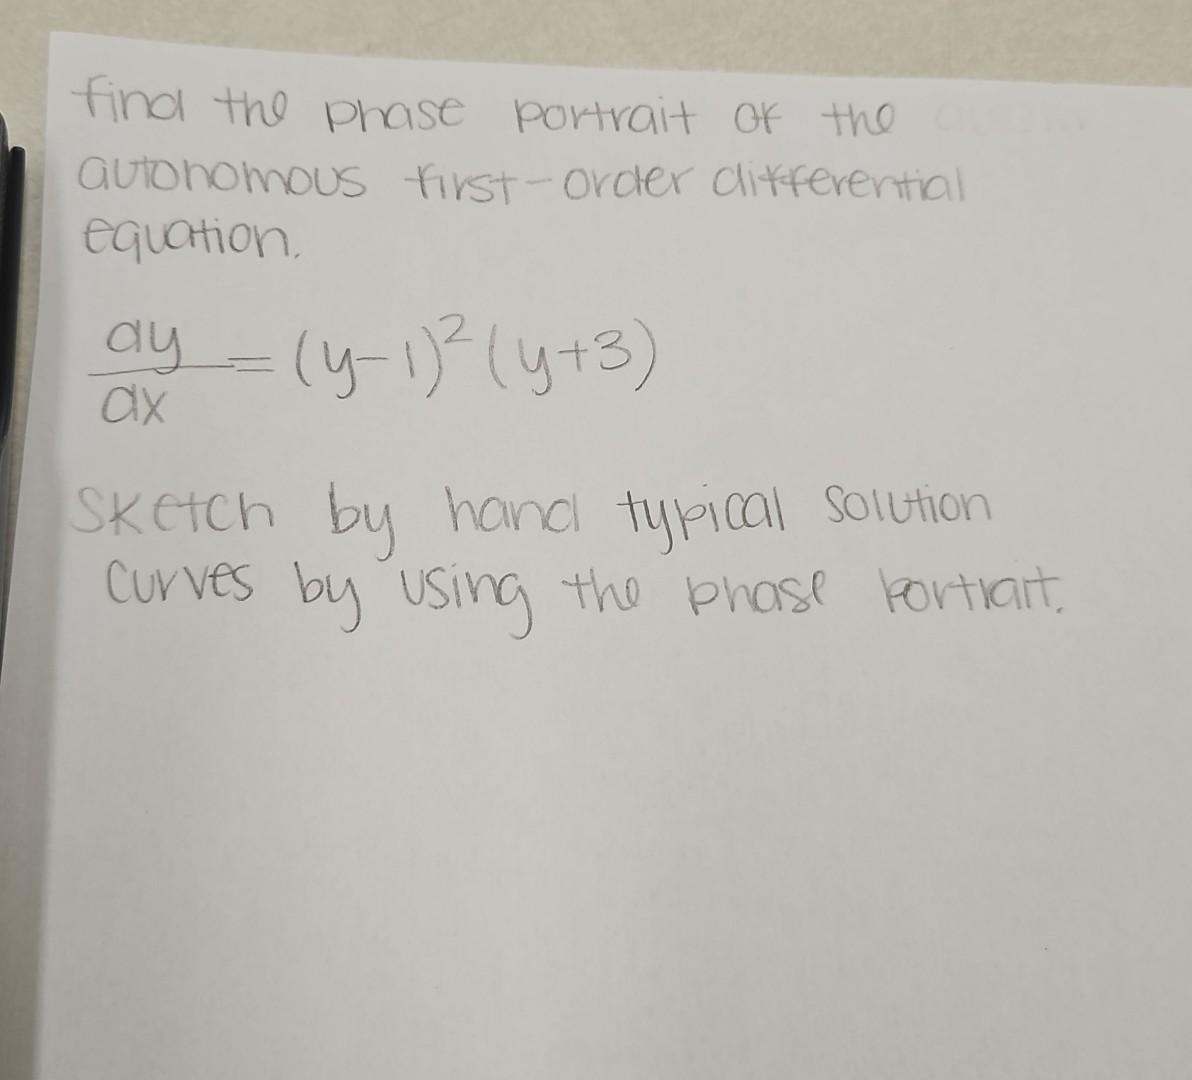 find the phase portrait of the
autonomous first-order differential
equation.
dy/dx = (y-1)²(y+3)
Sketch by hand typical solution
curves by using the phase portrait.